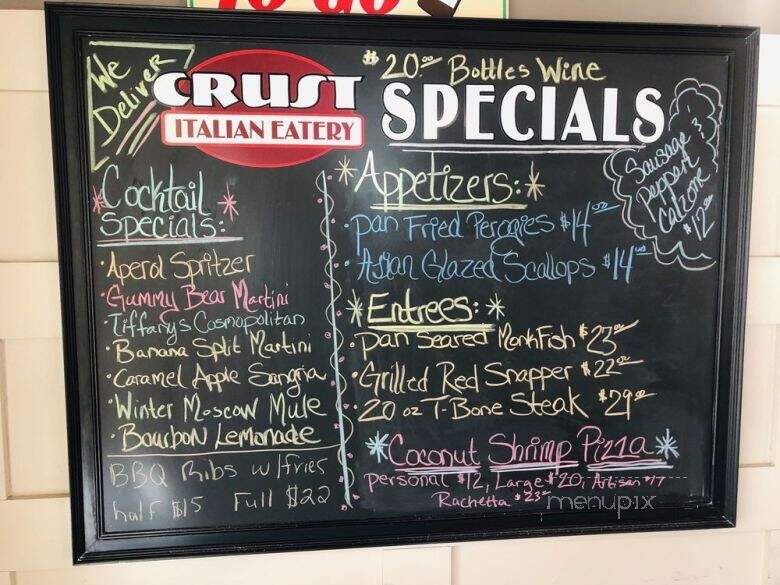 TO GO
We
Deliver
CRUST
ITALIAN EATERY
$20.00 Bottles Wine
SPECIALS
Sausage &
Peppers
Calzone
$12.00
*Cocktail *
Specials:
• Aperol Spritzer
• Gummy Bear Martini
• Tiffany's Cosmopolitan
• Banana Split Martini
• Caramel Apple Sangria
• Winter Moscow Mule
• Bourbon Lemonade
BBQ Ribs w/fries
half $15 Full $22
*Appetizers:*
• Pan Fried Perogies $14.00
• Asian Glazed Scallops $14.00
*Entrees:*
• Pan Seared MonkFish $23.00
• Grilled Red Snapper $22.00
• 20 oz T-Bone Steak $29.00
*Coconut Shrimp Pizza*
Personal $12, Large $20, Artisan $17
Rachetta $23.00
menupix